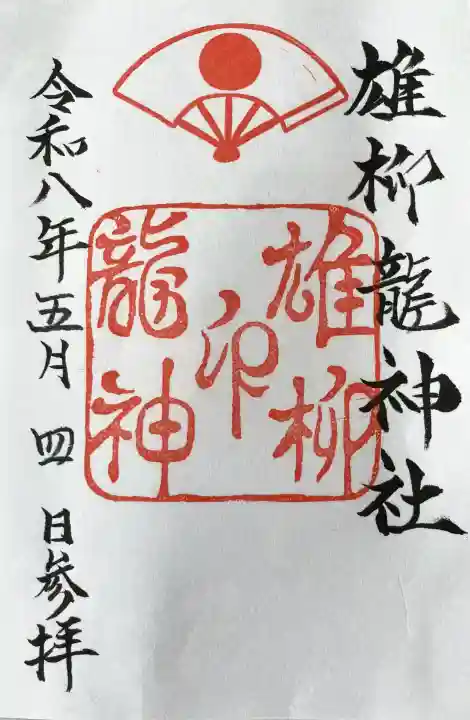 雄柳龍神社
雄柳
印
龍神
令和八年五月四日参拝